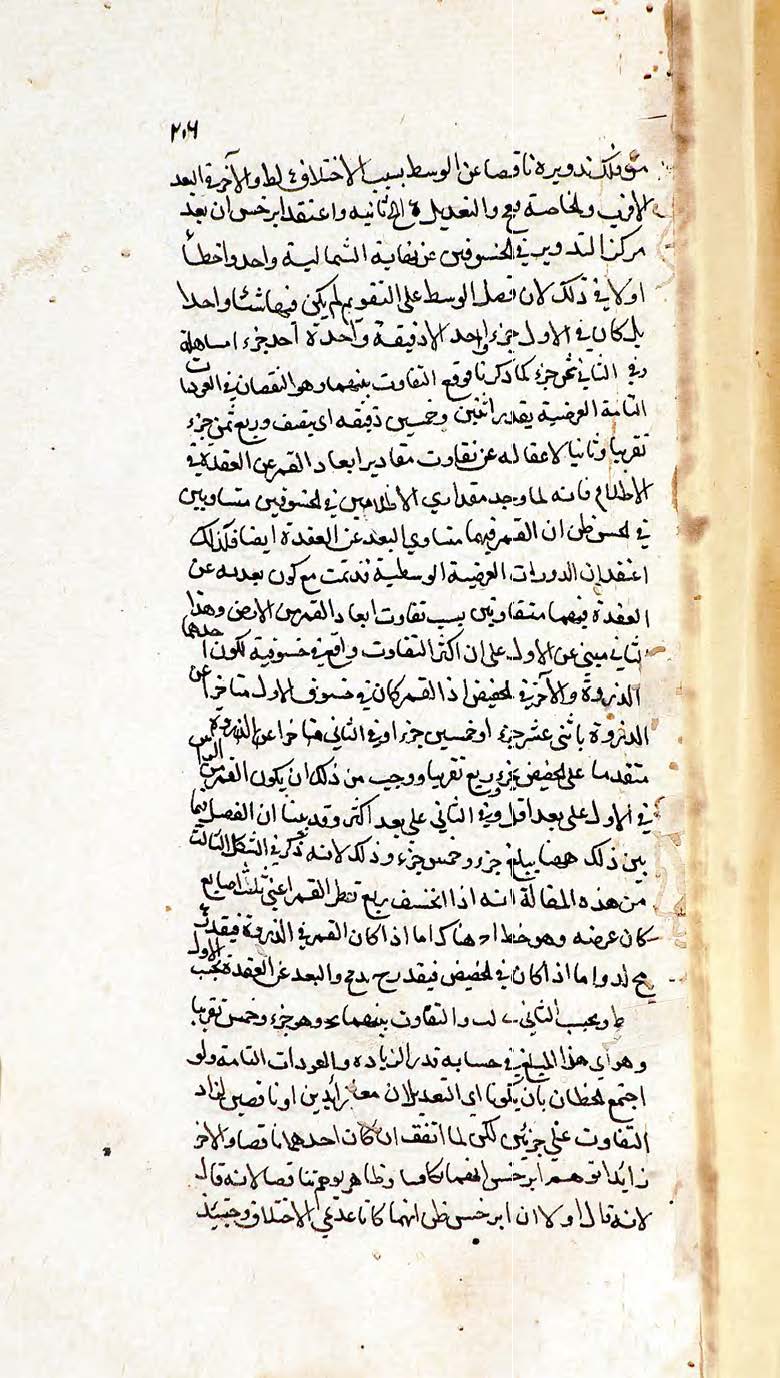 ٢٠٦
من فلك تدويره ناقصا عن الوسط بسبب الاختلاف لط والآخر في البعد
الاقرب والخاصة والتعديل الثانيه واعتقد ابرخس ان بعد
مركز التدوير في الخسوفين عن نهاية الشمالية واحد واخطأ
اولا في ذلك لان فضل الوسط على التقويم لم يكن فيهما شئا واحدا
بل كان في الاول جزء واحد الا دقيقة واحدة احد جزء
وفي الثاني ثمن جزء كما ذكرنا فوقع التفاوت بينهما وهو النقصان في العودات
التامة العرضية بقدر اثنين وخمسين دقيقه اى نصف وربع ثمن جزء
تقريبا وثانيا لاغفاله عن تفاوت مقادير ابعاد القمر عن العقدة في
الاظلام فانه لما وجد مقداري الاظلامين في الخسوفين متساويين
في الحس ظن ان القمر فيهما متساوي البعد عن العقدة ايضا فكذلك
اعتقد ان الدورات العرضية الوسطية قد تمت مع كون بعديه عن
العقدة فيهما متفاوتين بسبب تفاوت ابعاد القمر من الارض وهذا
الثاني مبني عن الاول على ان اكثر التفاوت واقع في خسوفيه لكون احدهما
الذروة والآخر في الحضيض اذ القمر كان في خسوف الاول متاخرا عن
الذروة باثنى عشر جزء او خمسين جزء اوفي الثاني متاخرا عن الذروة
متقدما على الحضيض بجزء وربع تقريبا ووجب من ذلك ان يكون القمر من
في الاول على بعد اقل وفي الثاني على بعد اكثر وقد بينا ان الفضل فيما
بين ذلك ههنا يبلغ جزء وخمس جزء وذلك لانه ذكر في الشكل الثالث
من هذه المقالة انه اذا انخسف ربع قطر القمر اعني ثلث اصابع
كان عرضه وهو خط ا د هنا كذا اما اذا كان القمر في الذروة فبقدر
واما اذا كان في الحضيض فبقدر والبعد عن العقدة بحسب الاول
ط وبحسب الثاني والتفاوت بينهما وهو جزء وخمس تقريبا
وهو اى هذا المبلغ في حسابه قدر الزياده والعودات التامة ولو
اجتمع الخطان بان يكونا اى التعديلان معا زائدين او ناقصين لزاد
التفاوت على جزئين لكن لما اتفق ان كان احدهما ناقصا والاخر
زايدا توهم ابرخس انهما تكافيا وظاهر يوهم تناقصا لانه قال
لانه قال اولا ان ابرخس ظن انهما كانا عدمى الاختلاف وحينئذ